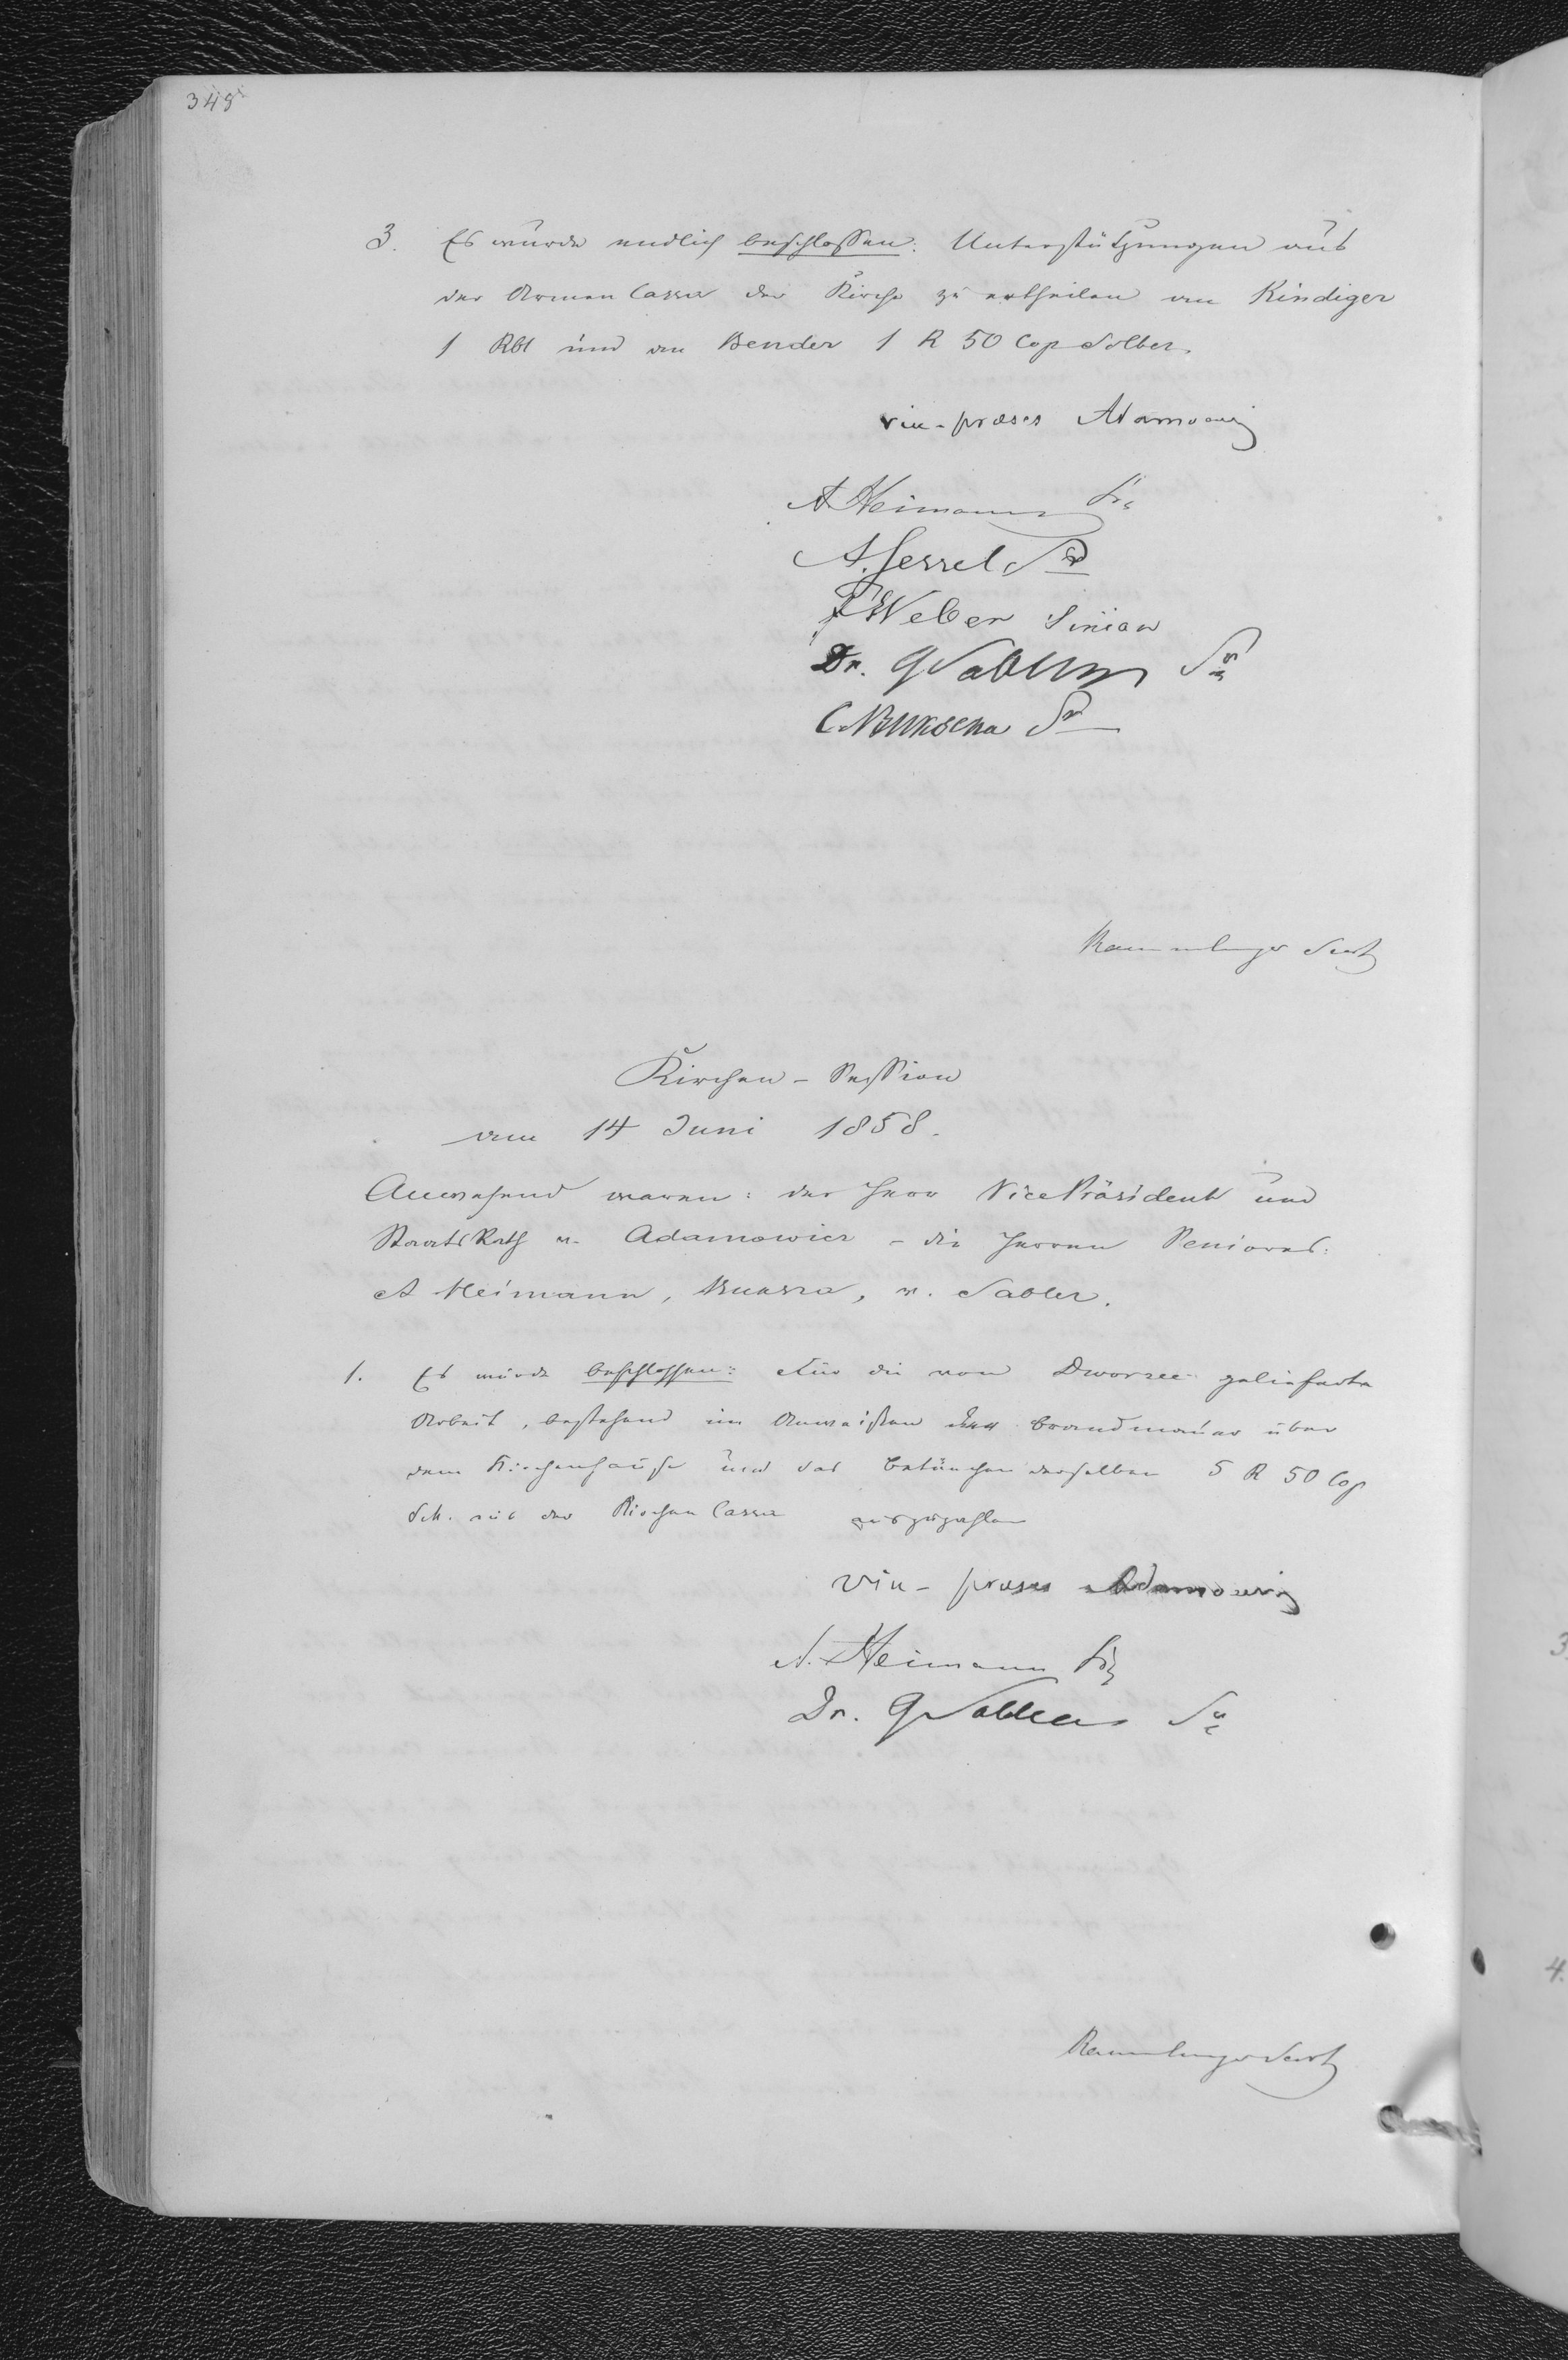 348
3. Es wurde endlich beschlossen: Unterstützungen aus
der Armen Cassa der Kirche zu ertheilen an Kindiger
1 Rbl und an Bender 1 R 50 Cop Silber.
vice-praeses Adamowicz
A Heimann Sr
A. Jessel Sr
Weber Sinior
Dr. G Sabler Sr
C. Bukscha Sr
Rammlinger Secrt
Kirchen-Session
am 14 Juni 1858.
Anwesend waren: der Herr VicePräsident und
StaatsRath v. Adamowicz - die Herren Seniores:
A Heimann, Buksza, v. Sabler.
1. Es wurde beschlossen: Für die von Dworzec gelieferte
Arbeit, bestehend im Anweißen der Brandmauer über
dem Kirchenhause und das Betünchen derselben 5 R 50 Cop
Slb. aus der Kirchen Cassa auszuzahlen
vice-praeses Adamowicz
A. Heimann Sr
Dr. G Sabler Sr
Rammlinger Secrt
3
4.